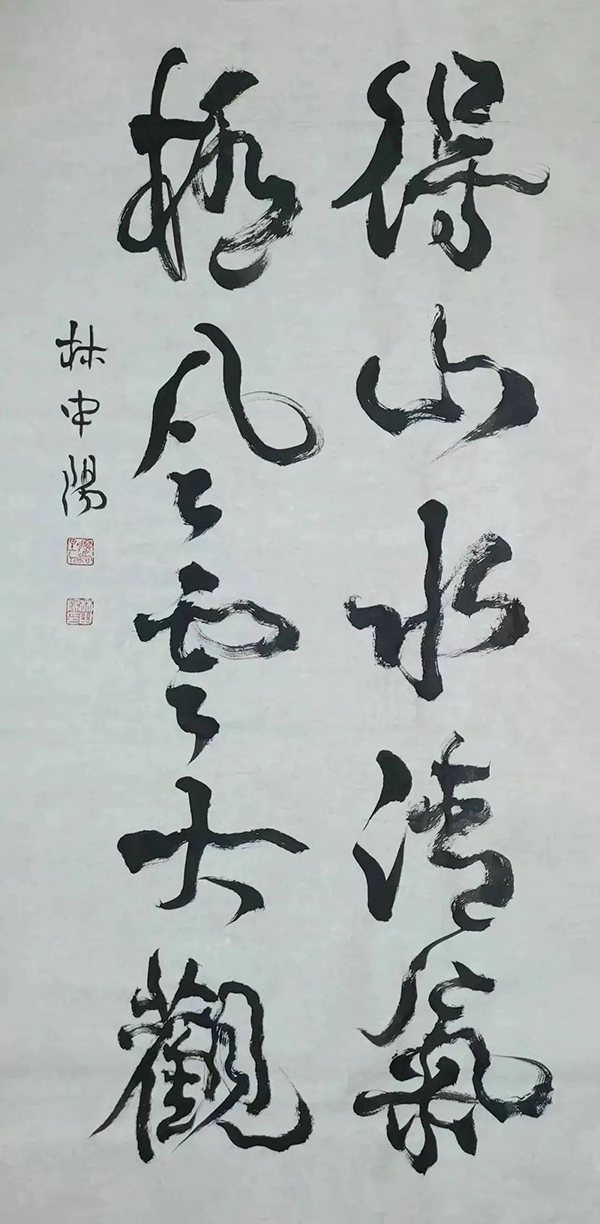 得山水清氣
極風雲大觀
林中陽